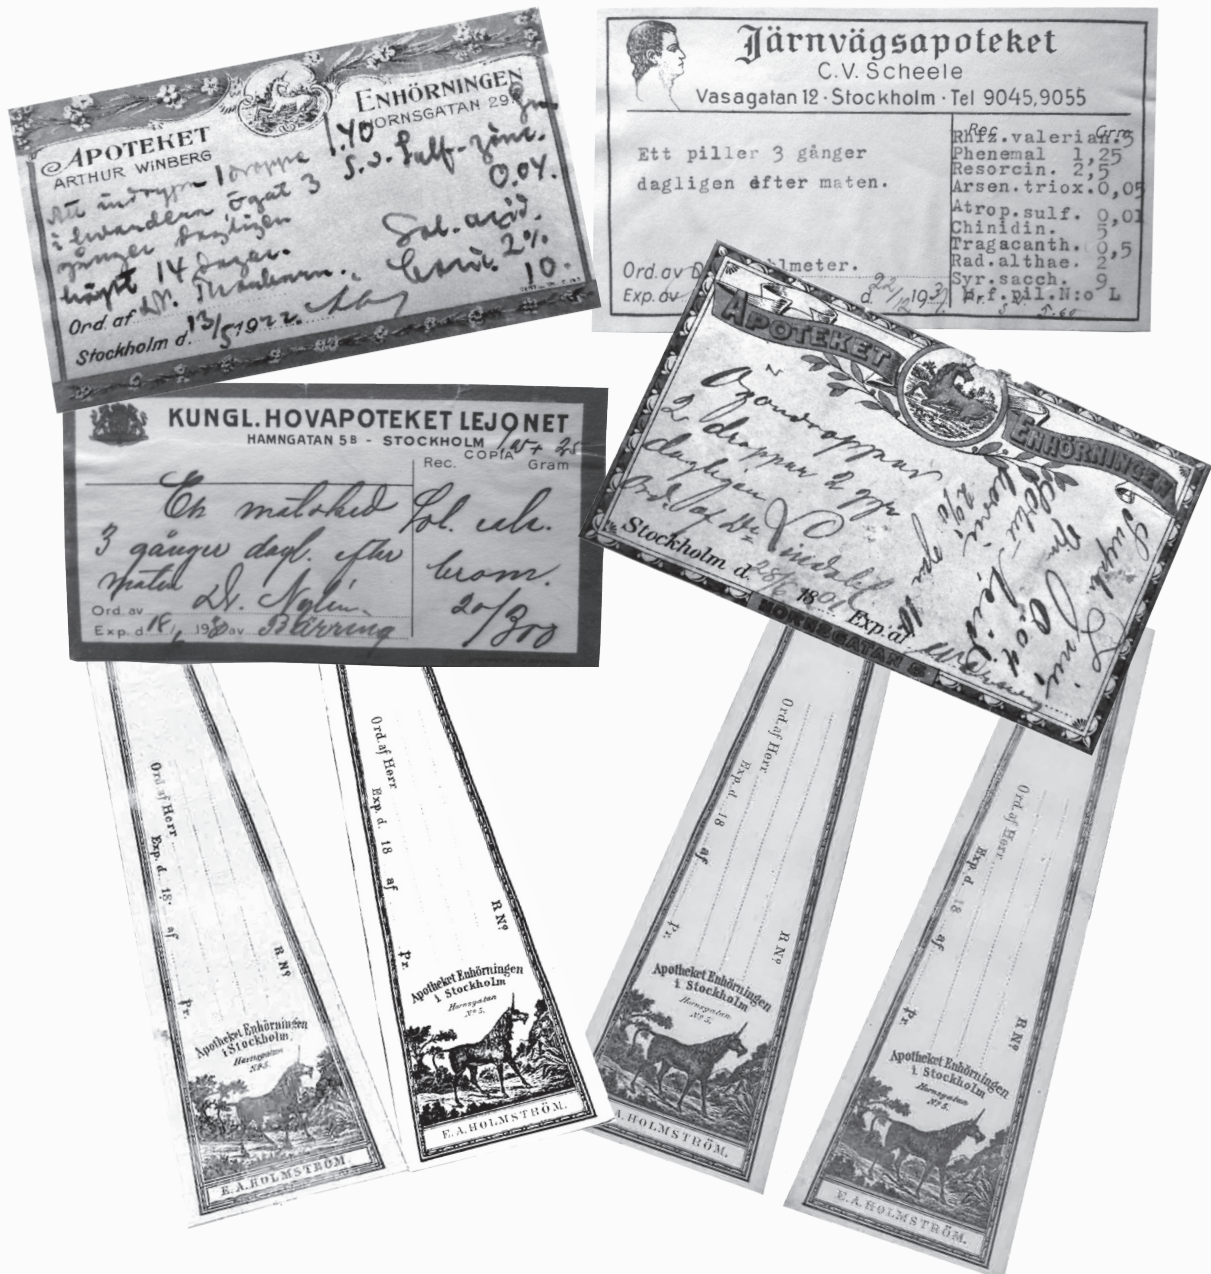 APOTEKET
ARTHUR WINBERG
ENHÖRNINGEN
HORNSGATAN 29
1.40
Att indrypa 1 droppe
i ögat 3
gånger dagligen
högst 14 dagar.
S. d. Sulf. zinc.
0.04.
Sol. acid.
boric. 2%
10.
Ord. af Dr.
Stockholm d. 13/5 1922.
Järnvägsapoteket
C.V. Scheele
Vasagatan 12 · Stockholm · Tel 9045,9055
Ett piller 3 gånger
dagligen efter maten.
Rec. Gram
Rhiz.valerian.5
Phenemal 1,25
Resorcin. 2,5
Arsen.triox.0,05
Atrop.sulf. 0,01
Chinidin. 5
Tragacanth. 0,5
Rad.althae. 2
Syr.sacch. 9
M.f.pil.N:o L
Ord.av D hlmeter.
Exp.av d. 22/12 1937.
KUNGL. HOVAPOTEKET LEJONET
HAMNGATAN 5B - STOCKHOLM
COPIA
Rec. Gram
En matsked
3 gånger dagl. efter
maten
Sol. alc.
brom.
20/300
Ord. av Dr. Nylin.
Exp. d. 18/ 19 av Bärring
APOTEKET
ENHÖRNINGEN
Ögondroppar
2 droppar 2 ggr
dagligen
Ord. af Dr Lindahl
Stockholm d. 28/6 18 Exp. af
HORNSGATAN 5
Ord. af Herr
Exp. d. 18 af
Pr.
R Nº
Apotheket Enhörningen
i Stockholm
Hornsgatan
Nº 5.
E. A. HOLMSTRÖM.
Ord. af Herr
Exp. d. 18 af
Pr.
R Nº
Apotheket Enhörningen
i Stockholm
Hornsgatan
Nº 5.
E. A. HOLMSTRÖM.
Ord. af Herr
Exp. d. 18 af
Pr.
R Nº
Apotheket Enhörningen
i Stockholm
Hornsgatan
Nº 5.
A. HOLMSTRÖM.
Ord. af Herr
Exp. d. 18 af
Pr.
R Nº
Apotheket Enhörningen
i Stockholm
Hornsgatan
Nº 5.
E. A. HOLMSTRÖM.